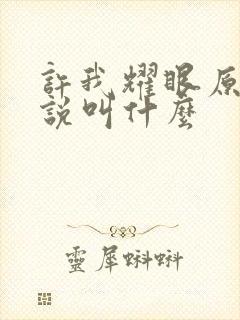 許我耀眼原
說叫什麼
靈犀蝌蝌